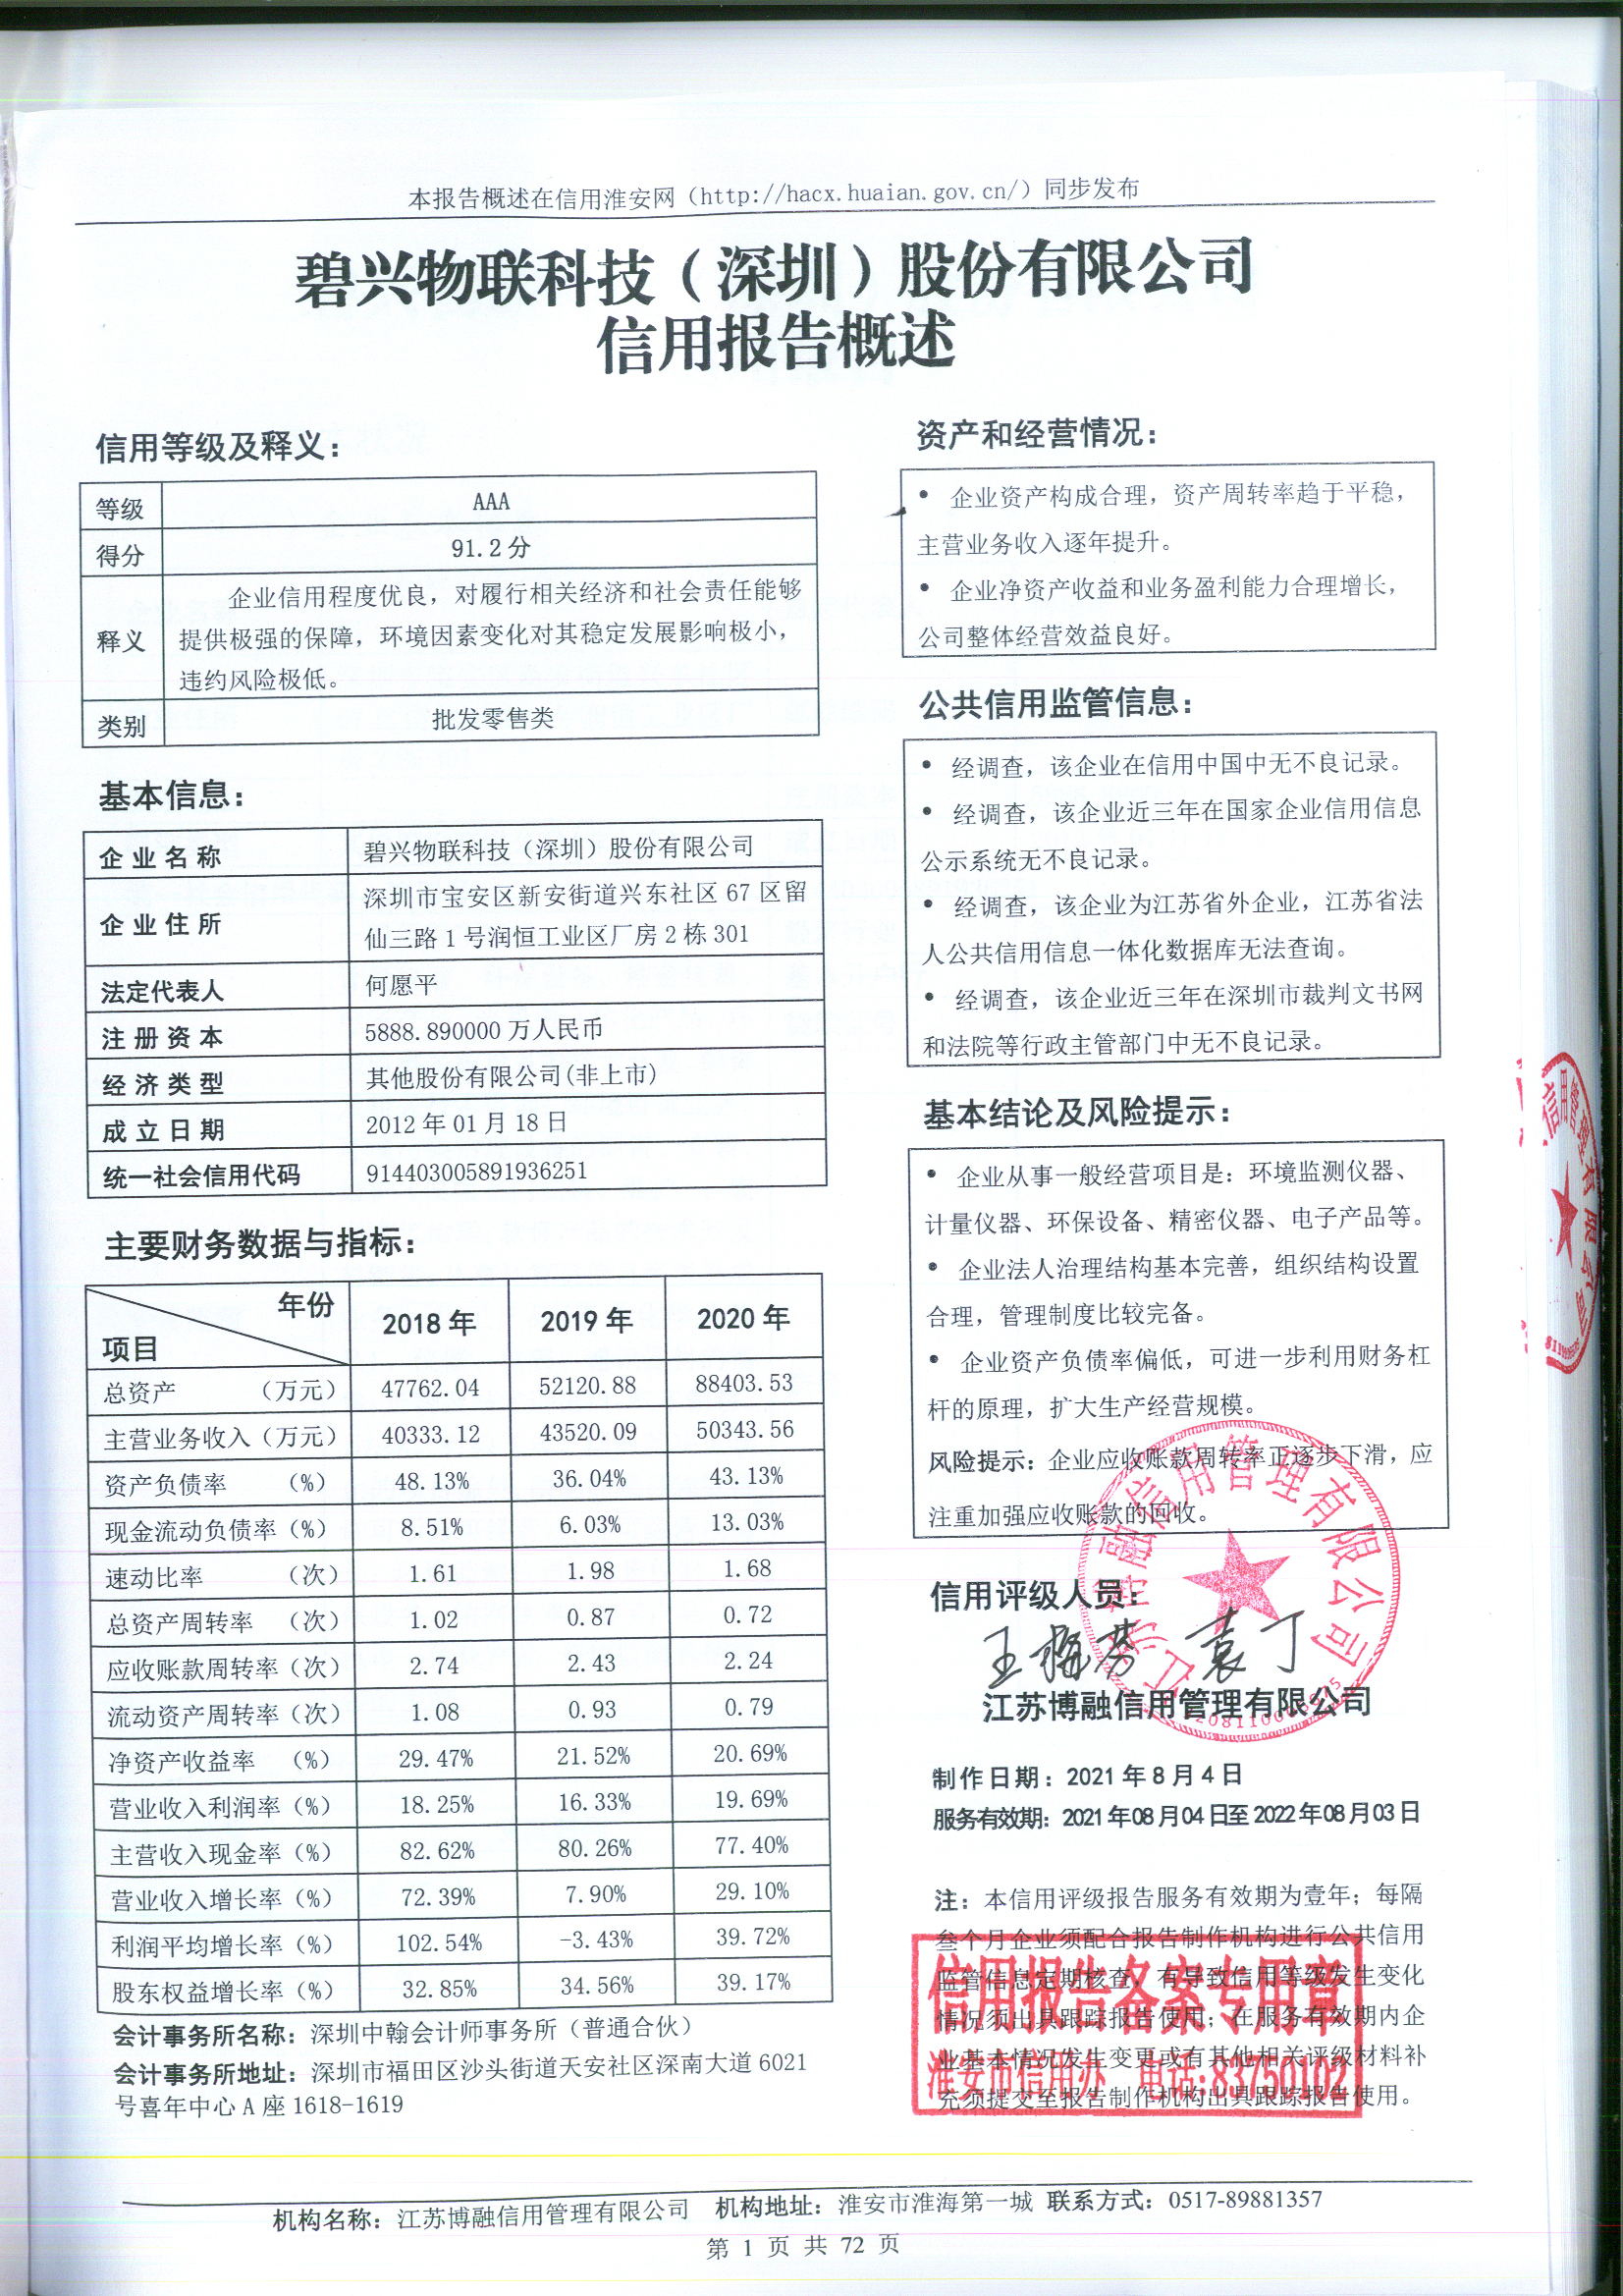 本报告概述在信用淮安网（http://hacx.huaian.gov.cn/）同步发布
碧兴物联科技（深圳）股份有限公司
信用报告概述
信用等级及释义：
等级 AAA
得分 91.2分
释义 企业信用程度优良，对履行相关经济和社会责任能够
提供极强的保障，环境因素变化对其稳定发展影响极小，
违约风险极低。
类别 批发零售类
基本信息：
企业名称 碧兴物联科技（深圳）股份有限公司
企业住所 深圳市宝安区新安街道兴东社区 67 区留
仙三路 1 号润恒工业区厂房 2 栋 301
法定代表人 何愿平
注册资本 5888.890000 万人民币
经济类型 其他股份有限公司(非上市)
成立日期 2012 年 01 月 18 日
统一社会信用代码 914403005891936251
主要财务数据与指标：
年份 项目 2018 年 2019 年 2020 年
总资产 （万元） 47762.04 52120.88 88403.53
主营业务收入（万元） 40333.12 43520.09 50343.56
资产负债率 （%） 48.13% 36.04% 43.13%
现金流动负债率（%） 8.51% 6.03% 13.03%
速动比率 （次） 1.61 1.98 1.68
总资产周转率 （次） 1.02 0.87 0.72
应收账款周转率（次） 2.74 2.43 2.24
流动资产周转率（次） 1.08 0.93 0.79
净资产收益率 （%） 29.47% 21.52% 20.69%
营业收入利润率（%） 18.25% 16.33% 19.69%
主营收入现金率（%） 82.62% 80.26% 77.40%
营业收入增长率（%） 72.39% 7.90% 29.10%
利润平均增长率（%） 102.54% -3.43% 39.72%
股东权益增长率（%） 32.85% 34.56% 39.17%
会计事务所名称：深圳中翰会计师事务所（普通合伙）
会计事务所地址：深圳市福田区沙头街道天安社区深南大道 6021
号喜年中心 A 座 1618-1619
资产和经营情况：
• 企业资产构成合理，资产周转率趋于平稳，
主营业务收入逐年提升。
• 企业净资产收益和业务盈利能力合理增长，
公司整体经营效益良好。
公共信用监管信息：
• 经调查，该企业在信用中国中无不良记录。
• 经调查，该企业近三年在国家企业信用信息
公示系统无不良记录。
• 经调查，该企业为江苏省外企业，江苏省法
人公共信用信息一体化数据库无法查询。
• 经调查，该企业近三年在深圳市裁判文书网
和法院等行政主管部门中无不良记录。
基本结论及风险提示：
• 企业从事一般经营项目是：环境监测仪器、
计量仪器、环保设备、精密仪器、电子产品等。
• 企业法人治理结构基本完善，组织结构设置
合理，管理制度比较完备。
• 企业资产负债率偏低，可进一步利用财务杠
杆的原理，扩大生产经营规模。
风险提示：企业应收账款周转率正逐步下滑，应
注重加强应收账款的回收。
信用评级人员：
江苏博融信用管理有限公司
江苏博融信用管理有限公司
制作日期：2021 年 8 月 4 日
服务有效期：2021年08月04日至2022年08月03日
注：本信用评级报告服务有效期为壹年；每隔
叁个月企业须配合报告制作机构进行公共信用
监管信息定期核查，有导致信用等级发生变化
情况须出具跟踪报告使用；在服务有效期内企
业基本情况发生变更或有其他相关评级材料补
充须提交至报告制作机构出具跟踪报告使用。
信用报告备案专用章
淮安市信用办 电话:83750102
机构名称：江苏博融信用管理有限公司 机构地址：淮安市淮海第一城 联系方式：0517-89881357
第 1 页 共 72 页